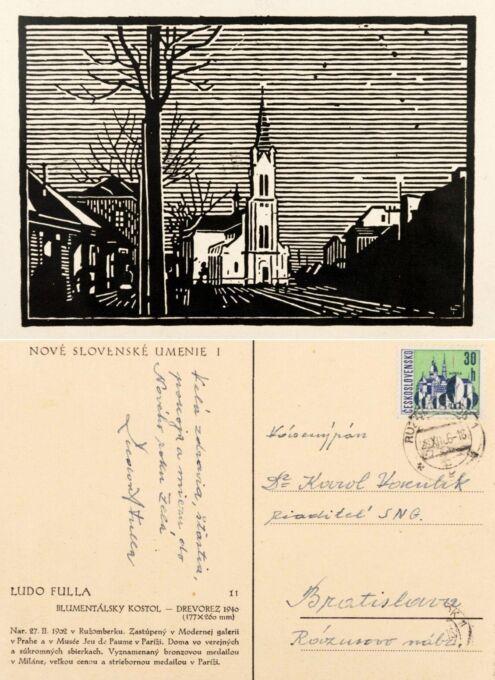 NOVÉ SLOVENSKÉ UMENIE I
Veľa zdravia, šťastia,
pokoja a mieru do
Nového roku želá
Ľudovít Fulla
ĽUDO FULLA 11
BLUMENTÁLSKY KOSTOL — DREVOREZ 1946
(177×260 mm)
Nar. 27. II. 1902 v Ružomberku. Zastúpený v Modernej galerii
v Prahe a v Musée Jeu de Paume v Paríži. Doma vo verejných
a súkromných sbierkach. Vyznamenaný bronzovou medailou
v Miláne, veľkou cenou a striebornou medailou v Paríži.
30 h
ČESKOSLOVENSKO
Vážený pán
Dr Karol Vaculík
riaditeľ SNG.
Bratislava
Rázusovo nábr.